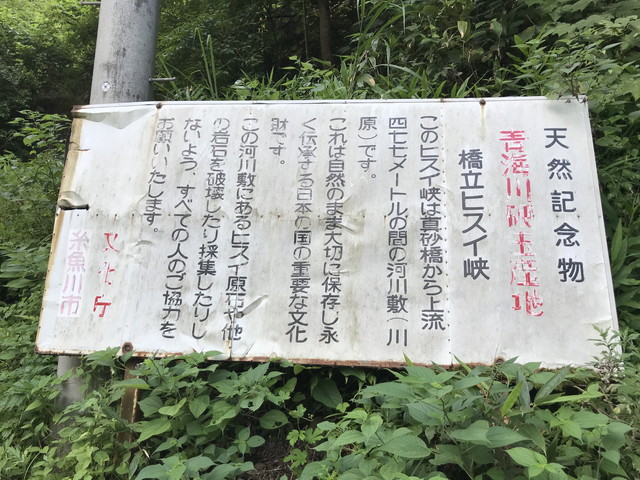 天然記念物
青海川硬玉産地
橋立ヒスイ峡
このヒスイ峡は真砂橋から上流
四七七メートルの間の河川敷(川
原)です。
これは自然のまま大切に保存し永
く伝承する日本の国の重要な文化
財です。
この河川敷にあるヒスイ原石や他
の岩石を破壊したり採集したりし
ないよう、すべての人のご協力を
お願いいたします。
文化庁
糸魚川市